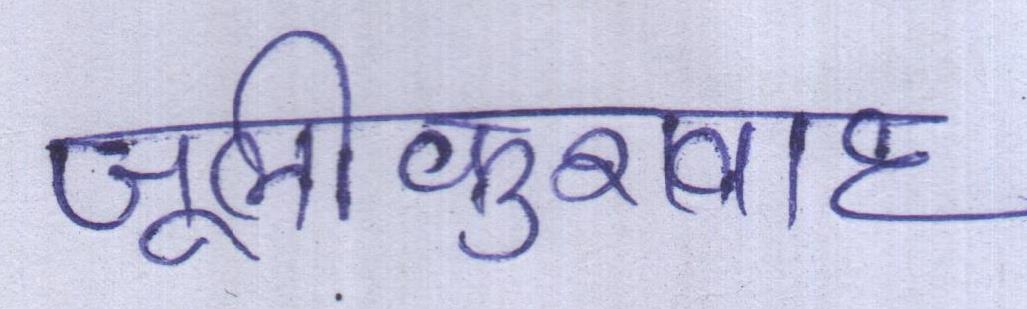 जूली कुशवाह